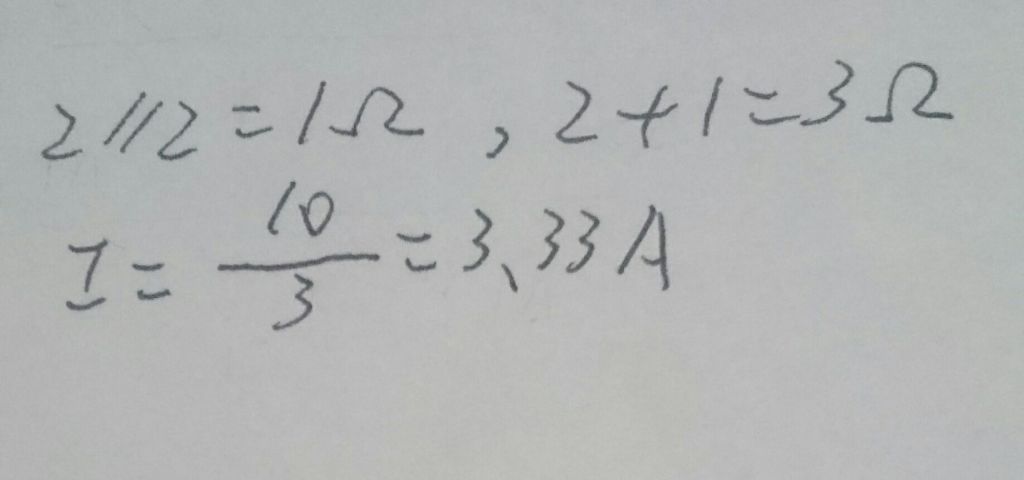 2//2=1Ω, 2+1=3Ω
I=10/3=3.33A